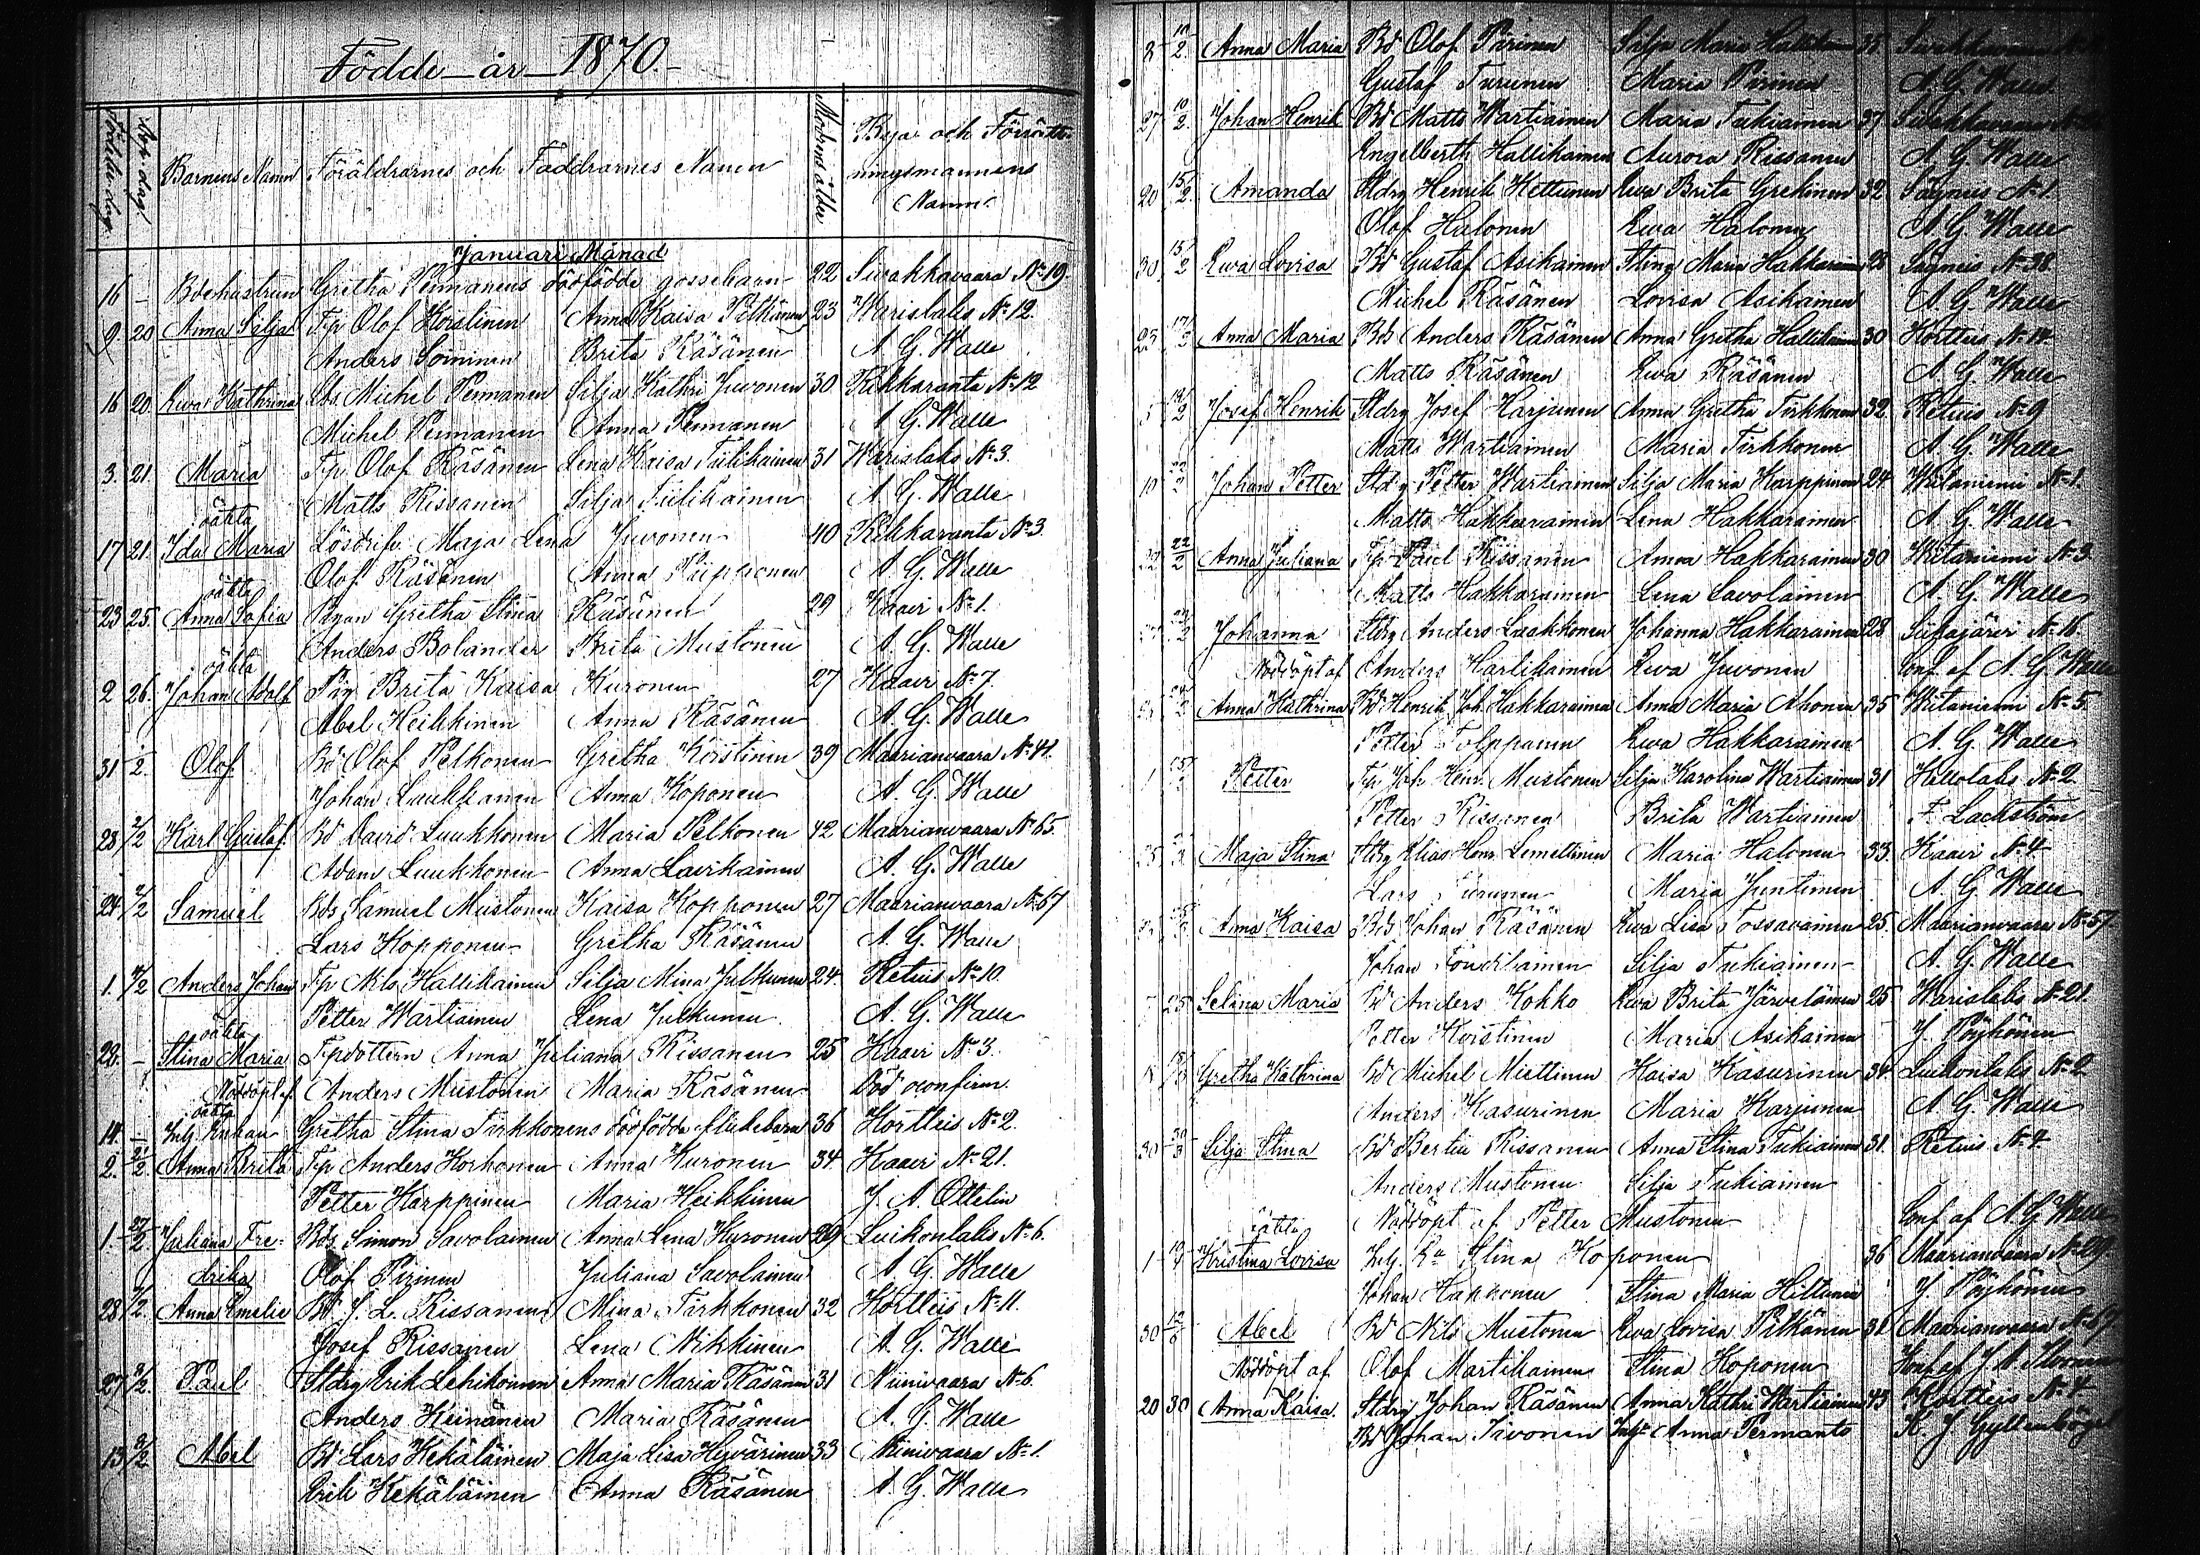 Födde år 1870.
Födelse dag. Döp. dag. Barnens Namn Föräldrarnes och Faddrarnes Namn Modrens ålder Byns och Förrättningsmannens Namn.
Januari Månad
16 – Bdehustrun Gretha Pennanens dödfödde gossebarn 22 Siwakkavaara No 19.
9 20 Anna Silja Tp Olof Koistinen Anna Kaisa Pitkänen 23 Warislaks No 12.
Anders Soininen Brita Räsänen A. G. Walle
16 20 Ewa Kathrina Michel Pennanen Silja Kathri Juvonen 30 Rikkaranta No 12
Michel Pennanen Anna Pennanen A. G. Walle
3. 21. Maria Tp Olof Räsänen Lena Kaisa Tiilikainen 31 Warislaks No 3.
Matts Rissanen Silja Tiilikainen A. G. Walle
oäkta
17 21. Ida Maria Lösdrifv. Maja Lena Juvonen 40 Rikkaranta No 3.
Olof Räsänen Anna Piipponen A. G. Walle
oäkta
23 25. Anna Sofia Gretha Stina Räsänen 29 Kaavi No 1.
Anders Bolander Brita Mustonen A. G. Walle
oäkta
2 26. Johan Adolf Pig. Brita Kaisa Kuronen 27 Kaavi No 7
Abel Heikkinen Anna Räsänen A. G. Walle
31 2. Olof Bd Olof Pelkonen Gretha Koistinen 39 Maarianvaara No 41.
Johan Luukkanen Anna Koponen A. G. Walle
28 2/2 Karl Gustaf Bd David Luukkonen Maria Pelkonen 42 Maarianvaara No 65.
Adam Luukkonen Anna Lavikainen A. G. Walle
24 2/2 Samuel Bds Samuel Mustonen Kaisa Kopponen 27 Maarianvaara No 67
Lars Kopponen Gretha Räsänen A. G. Walle
1. 2 Anders Johan Tp Nils Hallikainen Silja Mina Julkunen 24. Retuis No 10.
Petter Wartiainen Lena Julkunen. A. G. Walle
oäkta
28. – Stina Maria Tpdottern Anna Juliana Rissanen 25 Kaavi No 3.
Nöddöpt af Anders Mustonen Maria Räsänen Död oconfirm.
oäkta
14. – Inh. Enkan Gretha Stina Tirkkonens dödfödde flickebarn 36 Kortteis No 2.
2. 21/2 Anna Brita Tp Anders Korhonen Anna Kuronen 34. Kaavi No 21.
Petter Karppinen Maria Heikkinen J. A. Ottelin
1. 27/2 Juliana Fre- Bds Simon Savolainen Anna Lena Kuronen 29 Luikonlaks No 6.
drika Olof Pirinen Juliana Savolainen A. G. Walle
28 2. Anna Emelie Bd J. L. Rissanen Mina Tirkkonen 32 Kortteis No 11.
Josef Rissanen Lena Nikkinen A. G. Walle
27 2 Paul Stdrg Erik Lehikoinen Anna Maria Räsänen 31 Niinivaara No 6.
Anders Heinänen Maria Räsänen A. G. Walle
13 2 Abel Bd Lars Kekäläinen Maja Lisa Hyvärinen 33 Niinivaara No 1.
Erik Kekäläinen Anna Räsänen A. G. Walle
8 10/2. Anna Maria Bd Olof Pirinen Silja Maria 35
Gustaf Turunen Maria Pirinen A. G. Walle
27 10/2. Johan Henrik Bd Matts Wartiainen Maria Tukiainen 37
Engelberth Hallikainen Aurora Rissanen A. G. Walle
20 15/2. Amanda Stdrg Henrik Kettunen Ewa Brita Grekinen 32 Sägneis No 1.
Olof Halonen Ewa Halonen A. G. Walle
30 15/2 Ewa Lovisa Bd Gustaf Asikainen Stina Maria Hakkarainen 28 Sägneis No 38.
Michel Räsänen Lovisa Asikainen A. G. Walle
25 17/2 Anna Maria Bds Anders Räsänen Anna Gretha Hallikainen 30 Kortteis No 14.
Matts Räsänen Ewa Räsänen A. G. Walle
Josef Henrik Stdrg Josef Harjunen Anna Gretha Tirkkonen 32. Retuis No 9
Matts Wartiainen Maria Tirkkonen A. G. Walle
10 22/2 Johan Petter Stdrg Petter Wartiainen Silja Maria Karppinen 24. Witaniemi No 1.
Matts Hakkarainen Lena Hakkarainen A. G. Walle
22 22/2 Anna Juliana Tp Paul Rissanen Anna Hakkarainen 30 Witaniemi No 3.
Matts Hakkarainen Lena Savolainen A. G. Walle
Johanna Stdrg Anders Luukkonen Johanna Hakkarainen 28 Siikajärvi No 16.
Nöddöpt af Anders Hartikainen Ewa Juvonen Conf. af A. G. Walle
Anna Kathrina Bd Henrik Joh. Hakkarainen Anna Maria Ahonen 35 Witaniemi No 5.
Petter Tolppanen Ewa Hakkarainen A. G. Walle
Petter Tp Joh. Henr. Mustonen Silja Karolina Wartiainen 31 No 2
Petter Rissanen Brita Wartiainen F. Lackström
Maja Stina Stdrg Elias Henr. Lemettinen Maria Halonen 33. Kaavi No 4.
Lars Turunen Maria Juntunen A. G. Walle
Anna Kaisa Bds Johan Räsänen Ewa Lisa Tossavainen 25. Maarianvaara No 57.
Johan Silja Tukiainen A. G. Walle
25 Selina Maria Bd Anders Kokko Ewa Brita Järveläinen 25 Warislaks No 21.
Petter Koistinen Maria Asikainen J. Pöyhönen
Gretha Kathrina Bd Michel Miettinen Kaisa Kasurinen 34. Luikonlaks No 2
Anders Kasurinen Maria Harjunen A. G. Walle
30 30/3 Silja Stina Bd Bertil Rissanen Anna Stina Tukiainen 31. Retuis No 4
Anders Mustonen Silja Tukiainen
Nöddöpt af Petter Mustonen Conf. af A. G. Walle
oäkta
1 Kristina Lovisa Stina Koponen 36 Maarianvaara No 29
Johan Stina Maria Hiltunen J. Pöyhönen
30 12 Abel Bd Nils Mustonen Ewa Lovisa Pitkänen 38 Maarianvaara
Nöddöpt af Olof Martikainen Stina Koponen Conf. af
20 30 Anna Kaisa. Stdrg Johan Räsänen Anna Kathri Wartiainen 43 Kortteis No 4
Bd Johan Iivonen Anna Permanto K. J.